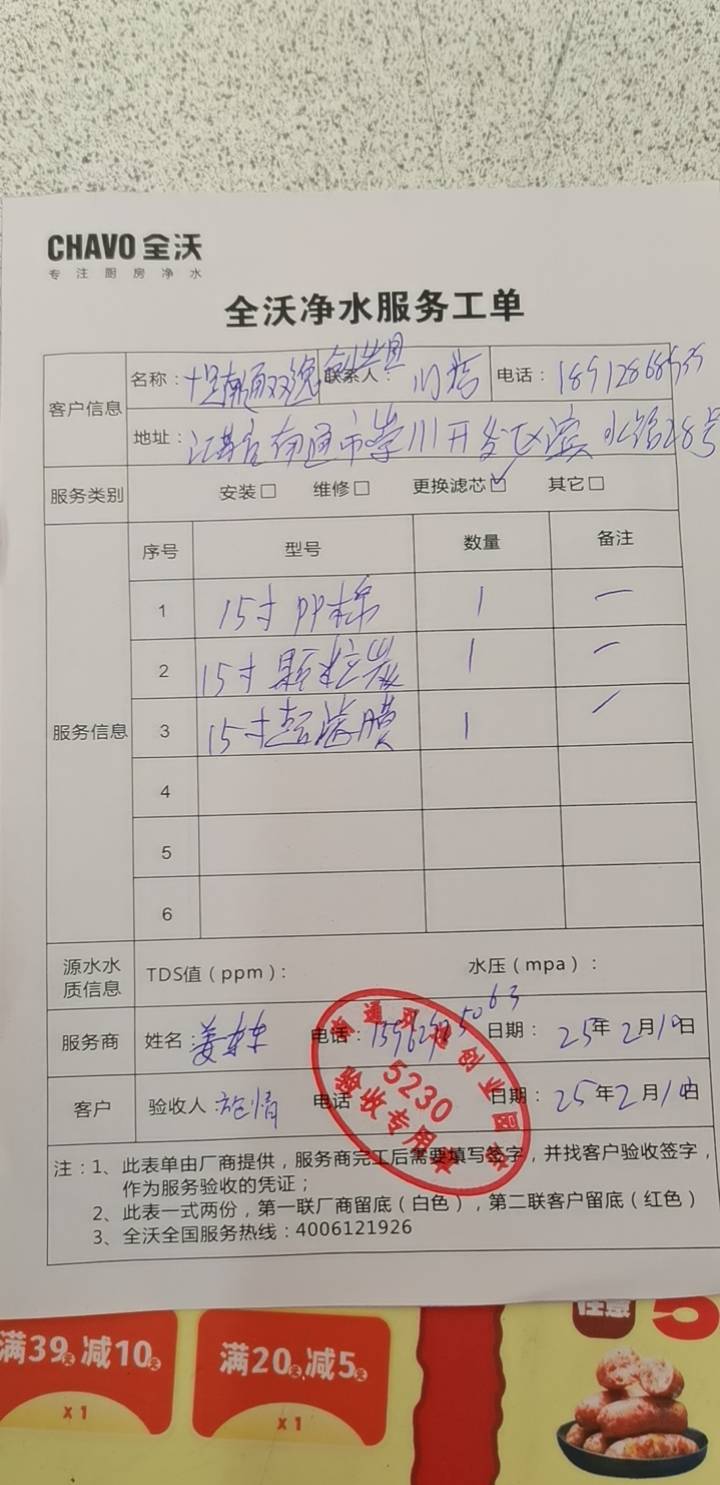 CHAVO 全沃
专注厨房净水
全沃净水服务工单
客户信息 名称： 联系人： 门店 电话：
地址：江苏省南通市崇川开发区滨水路28号
服务类别 安装□ 维修□ 更换滤芯☑ 其它□
服务信息 序号 型号 数量 备注
1 15寸PP棉 1 一
2 15寸颗粒炭 1 一
3 15寸超滤膜 1 一
4
5
6
源水水质信息 TDS值（ppm）： 水压（mpa）：
服务商 姓名：姜 电话： 日期：25年2月10日
客户 验收人：施情 电话 日期：25年2月10日
5230
验收专用章
注：1、此表单由厂商提供，服务商完工后需要填写签字，并找客户验收签字，
作为服务验收的凭证；
2、此表一式两份，第一联厂商留底（白色），第二联客户留底（红色）
3、全沃全国服务热线：4006121926
满39元减10元
x1
满20元减5元
x1
任意
5